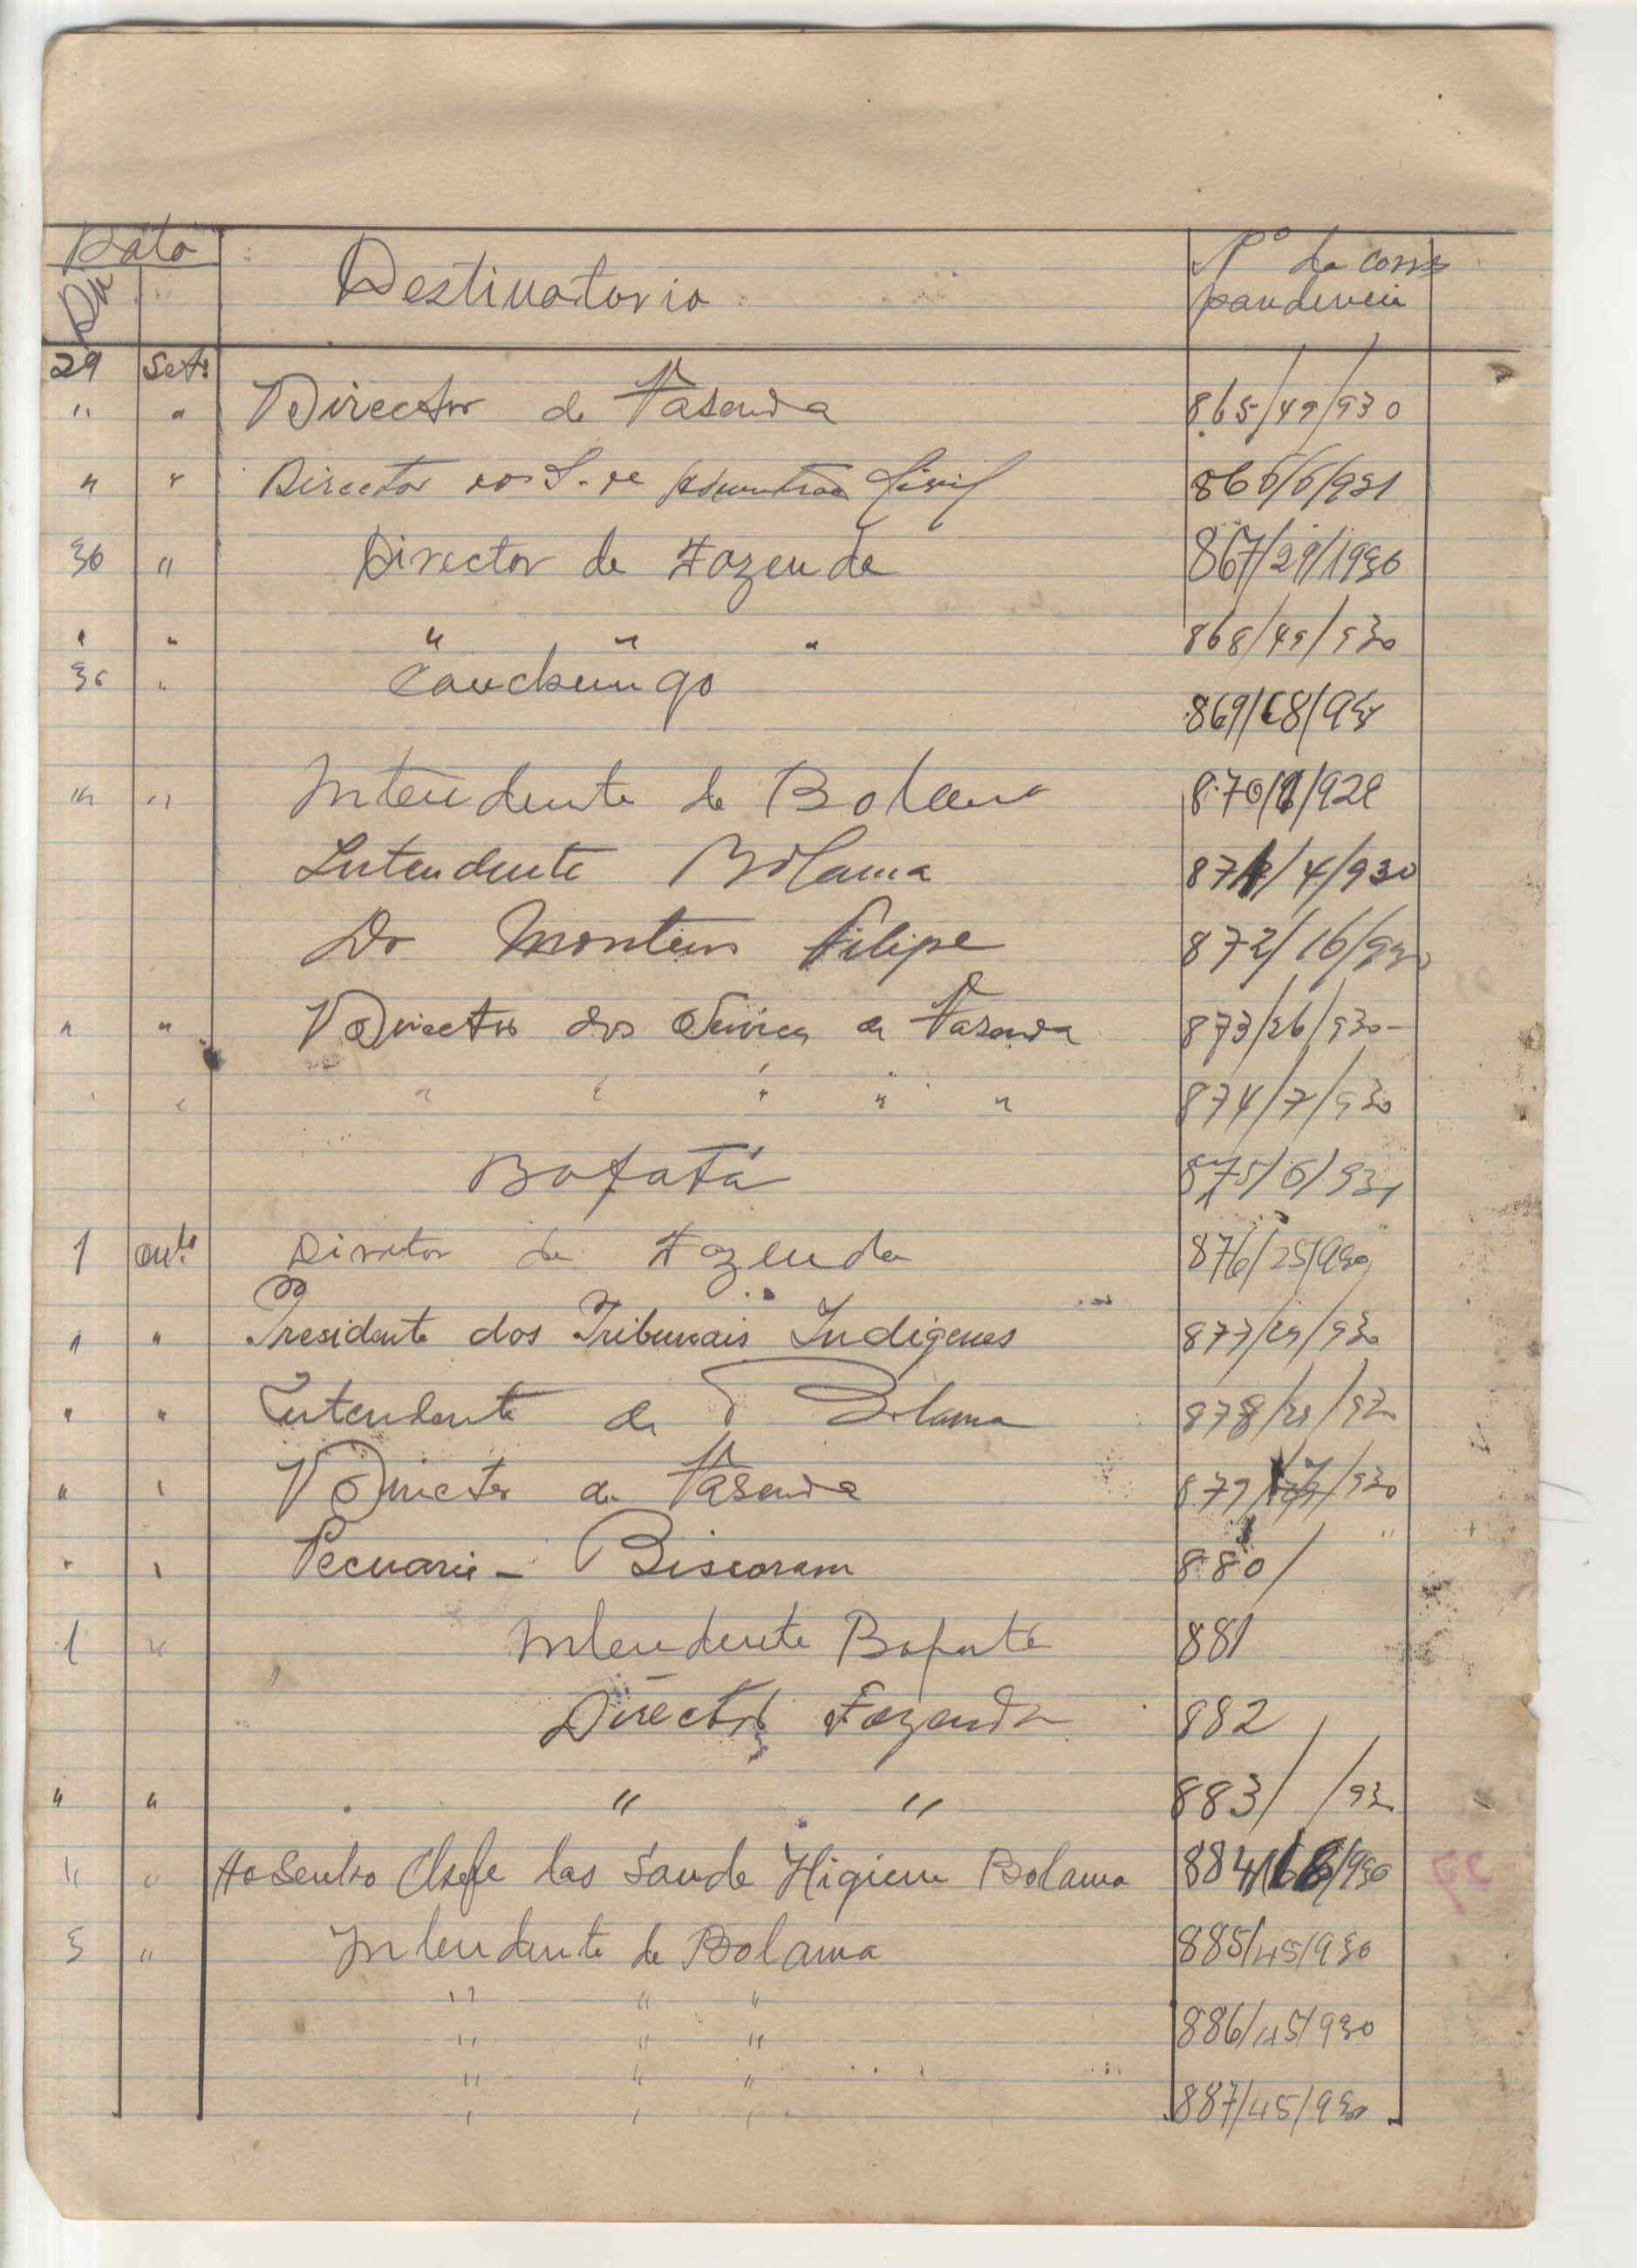 Data
Destinatario Nº da corres
Dia pondencia
29 Set.
" " Director de Fazenda 865/49/930
" " Director dos S. de Civil 866/6/931
30 " Director de Fazenda 867/29/1930
" " " " " 868/49/930
30 " Canchungo
869/68/93
" " Intendente de Bolama 870/1/929
Intendente Bolama 871/4/930
Dr Monteiro Filipe 872/16/930
" " Director dos Serviços de Fazenda 873/26/930
" " " " " " " 874/7/930
Bafatá 875/6/931
1 out. Diretor de Fazenda 876/25/930
" " Presidente dos Tribunais Indigenas 877/29/930
" " Intendente de Bolama 878/29/93
" " Director de Fazenda 879/ /930
" " Pecuaria - Bissoram 880/
1 " Intendente Bafatá 881
Director Fazenda 882
" " " " 883/ /93
" " Ao Senhro Chefe das Saude Higiene Bolama 884/68/930
3 " Intendente de Bolama 885/45/930
" " "
" " " 886/45/930
" " "
" " " 887/45/930